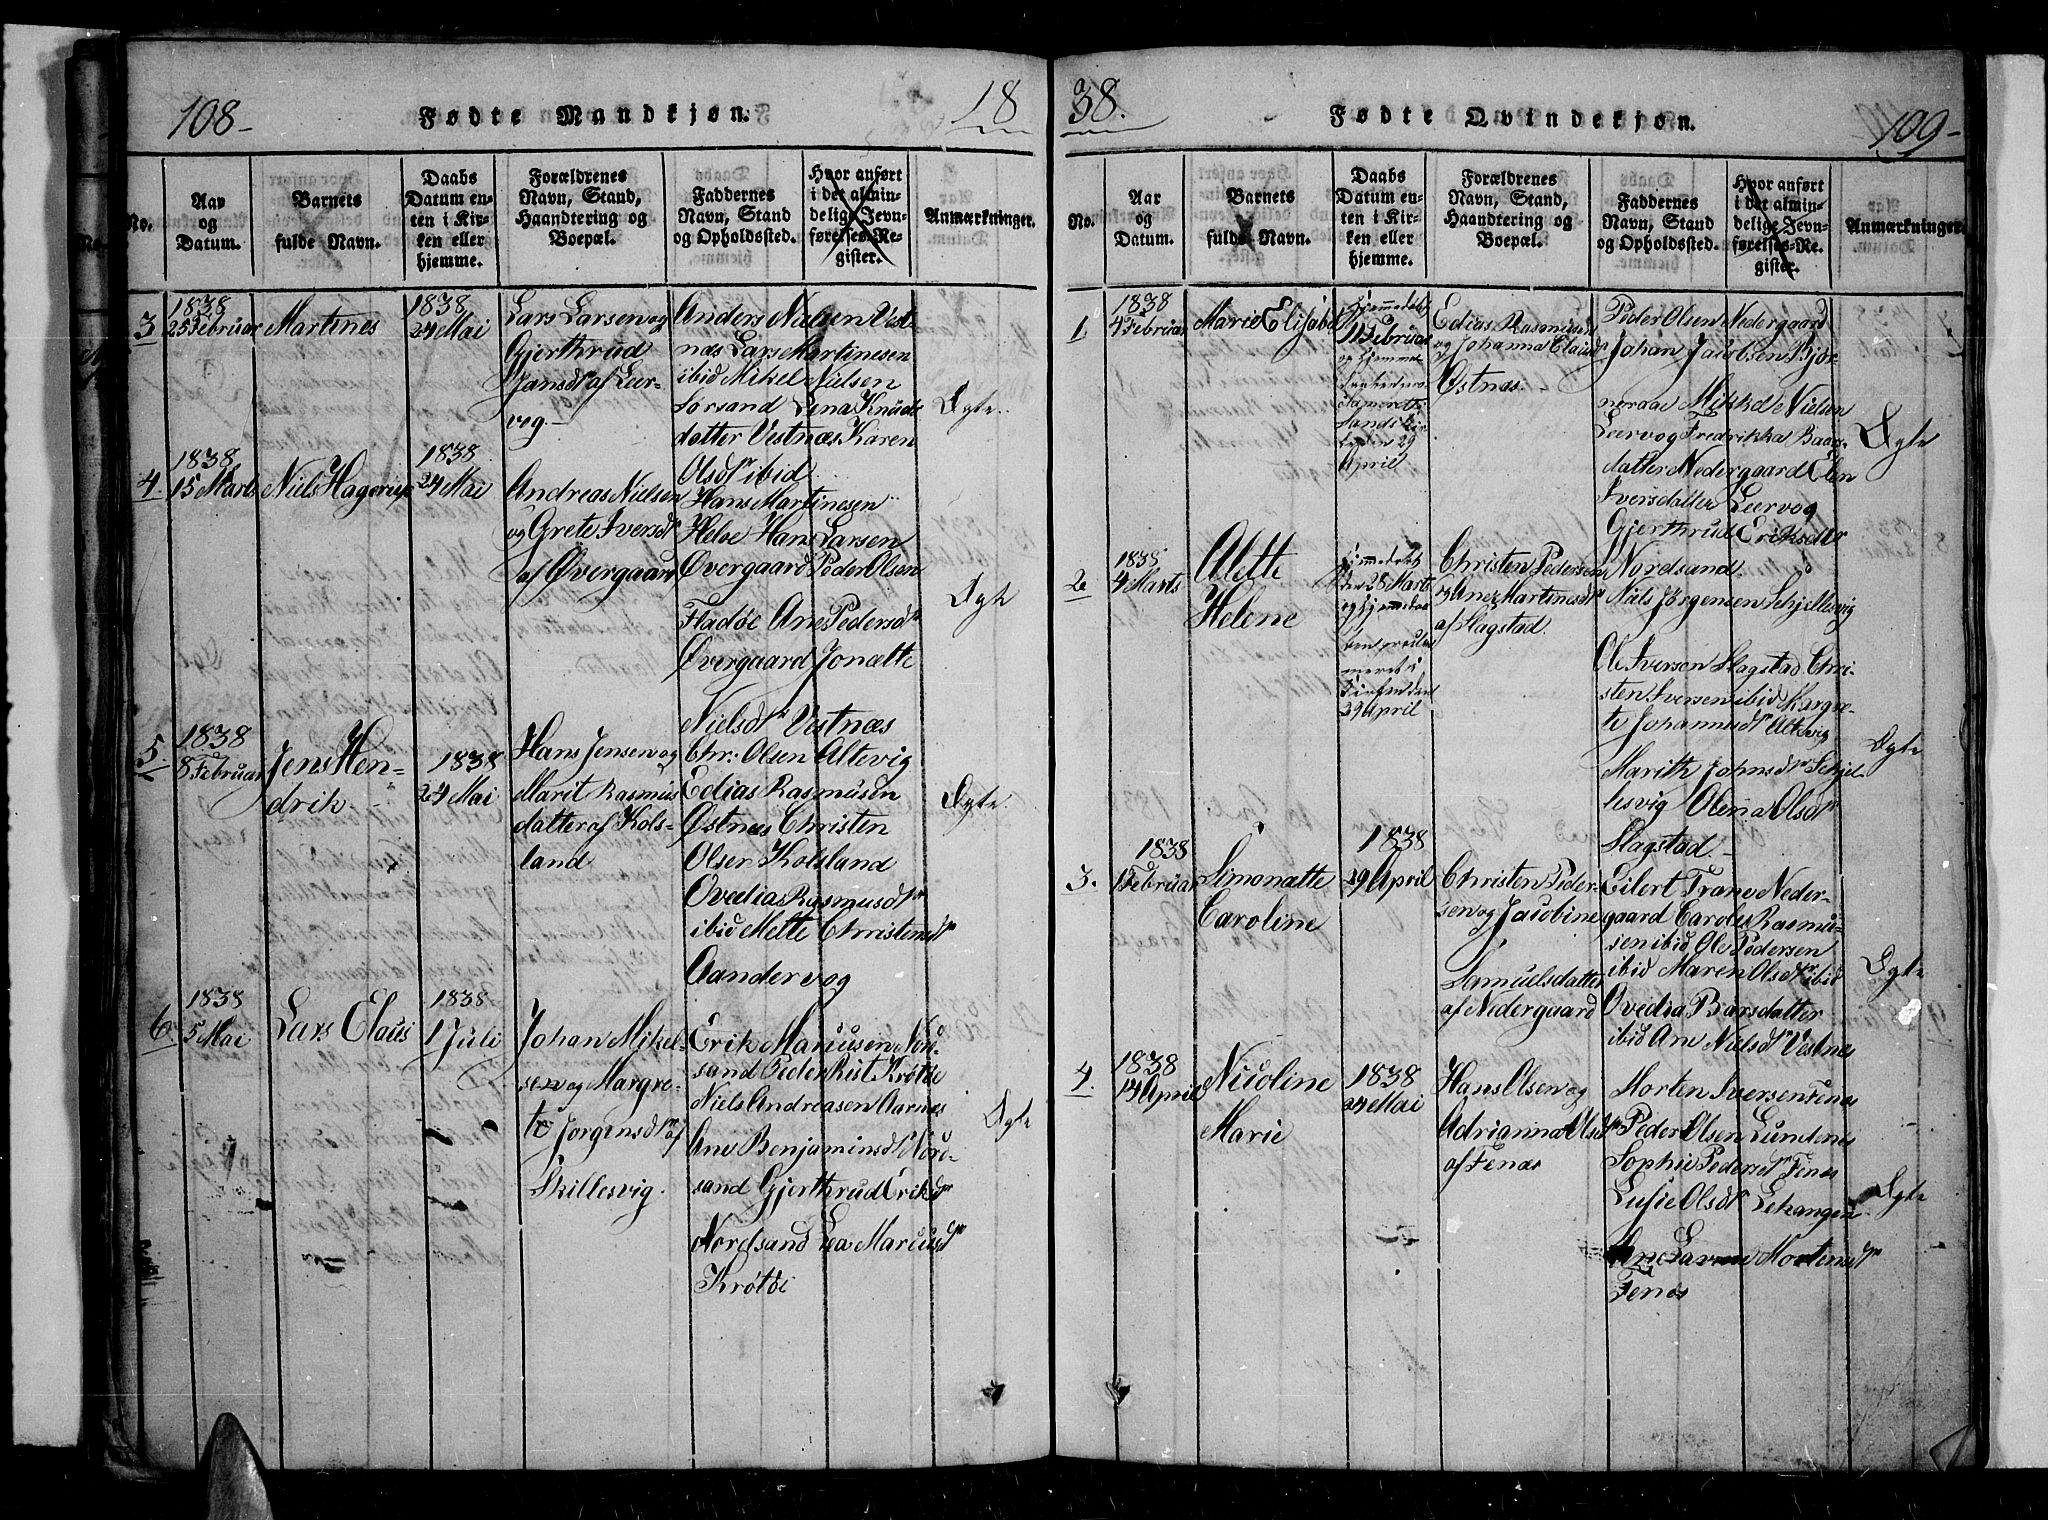 108-
Fødte Mandkjøn.
18
No.
Aar
og
Datum.
Barnets
fulde Navn.
Daabs
Datum en-
ten i Kir-
ken eller
hjemme.
Forældrenes
Navn, Stand,
Haandtering og
Boepæl.
Faddernes
Navn, Stand
og Opholdssted.
Hvor anført
i det almin-
delige Jevn-
førelses-Re-
gister.
Anmærkninger.
3
1838
25 Februar
Martines
1838
24 Mai
Lars Larsen og
Gjerthrud
Jansdr af Leer-
vog.
Anders Nielsen Vest-
næs Lars Martinesen
ibid Mikel Nielsen
Sorsand Lina Knuds-
datter Vestnæs Karen
Olsdr ibid
Ægte.
4.
1838
15 Marts
Niels Hagerup
1838
24 Mai
Andreas Nielsen
og Grete Iversdr
af Øvergaard
Hans Martinesen
Heloe Hans Larsen
Øvergaard Peder Olsen
Fladöe Ane Pedersdr
Øvergaard Jonætte
Nielsdr Vestnæs
Ægte
5.
1838
8 Februar
Jens Hen-
drik
1838
24 Mai
Hans Jensen og
Marit Rasmus
datter af Kols-
land
Chr: Olsen Altevig
Edias Rasmusen
Østnæs Christen
Olsen Kolsland
Ovedia Rasmusdr
ibid Mette Christensdr
Aandervog
Ægte.
6.
1838
5 Mai
Lars Claus
1838
1 Juli
Johan Mikel-
sen og Margre-
te Jorgensdr af
Skillesvig.
Erik Marcusen Nord-
sand Peder Rist Krötöe
Niels Andreasen Aarnes
Ane Benjaminsdr Nord-
sand Gjerthrud Eriksdr
Nordsand Lea Marcusdr
Krötöe
Ægte
38.
Fødte Qvindekjøn.
109-
No.
Aar
og
Datum.
Barnets
fulde Navn.
Daabs
Datum en-
ten i Kir-
ken eller
hjemme.
Forældrenes
Navn, Stand,
Haandtering og
Boepæl.
Faddernes
Navn, Stand
og Opholdssted.
Hvor anført
i det almin-
delige Jevn-
førelses-Re-
gister.
Anmærkninger.
1.
1838
4 Februar
Marie Elisabet
Hjemmedøbt
11 Februar
og Hjemme
29
April
Edias Rasmusen
og Johanna Clausdr
Østnæs.
Peder Olsen Nedergaard
Johan Jacobsen Bjør-
neraae Mikkel Nielsen
Leervog Fredrikka Baars-
datter Nedergaard Elen
Iversdatter Leervog
Gjerthrud Eriksdtr
Nordsand.
Ægte
2
1838
4 Marts
Alette
Helene
Hjemmedøbt
den 28 Marts
og Hjemmedaa
ben procla
meret i
Kirken den
29 April
Christen Pedersen
og Ane Martinesdr
af Slagstad.
Niels Jörgensen Schjellesvig
Ole Iversen Slagstad Chri-
sten Iversen ibid Margre-
te Johannesdr Altevig
Marith Johnsdr Schjel-
lesvig Olena Olsdr
Slagstad.
Ægte
3.
1838
1 Februar
Simonætte
Caroline
1838
29 April
Christen Peder-
sen og Jacobine
Samuelsdatter
af Nedergaard
Eilert Trane Neder-
gaard Carole Rasmu-
sen ibid Ole Pedersen
ibid Maren Olsdr ibid
Ovedia Barsdatter
ibid Ane Nielsdr Vestnæs
Ægte
4.
1838
14 April
Nicoline
Marie
1838
24 Mai
Hans Olsen og
Adrianna Olsdr
af Fenæs
Morten Iversen Fenæs
Peder Olsen Lundenes
Sophie Pedersdr Fenes
Lusie Olsdr Lehangen
Ane Mortensdr
Fenes
Ægte